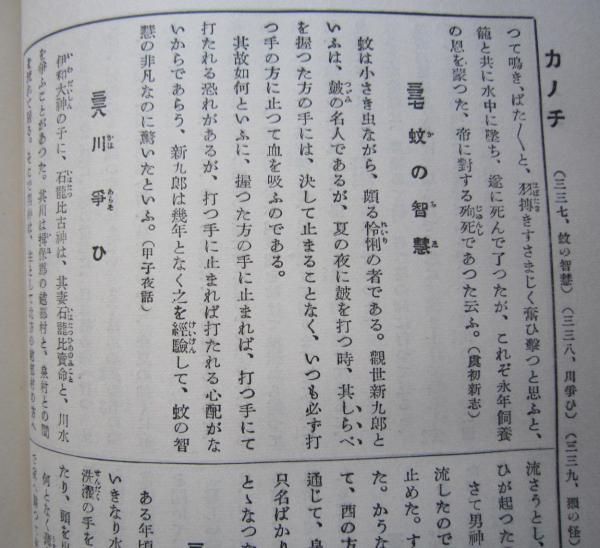 カノチ
（三三七、蚊の智慧）（三三八、川爭ひ）（三三九、
つて鳴き、ばた〱と、羽搏きすさまじく奮ひ擊つと思ふと、
籠と共に水中に墜ち、遂に死んで了つたが、これぞ永年飼養
の恩を蒙つた、帝に對する殉死であつた云ふ。（虞初新志）
三三七 蚊の智慧
蚊は小さき虫ながら、頗る怜悧の者である。觀世新九郎と
いふは、皷の名人であるが、夏の夜に皷を打つ時、其しらべ
を握つた方の手には、決して止まることなく、いつも必ず打
つ手の方に止つて血を吸ふのである。
其故如何といふに、握つた方の手に止まれば、打つ手にて
打たれる恐れがあるが、打つ手に止まれば打たれる心配がな
いからであらう、新九郎は幾年となく之を經驗して、蚊の智
慧の非凡なのに驚いたといふ。（甲子夜話）
三三八 川爭ひ
伊和大神の子に、石龍比古神は、其妻石龍比賣命と、川水
を爭ふことがあつた。其川は揖保郡の越部村と、泉村との間
流さうとし、
ひが起つた
さて男神
流したので
止めた。す
た。かうな
て、西の方
通じて、泉
只名ばかり
とゝなつた
ある年頃
いきなり水
洗濯の手を
たり、頭を出
何となく凄